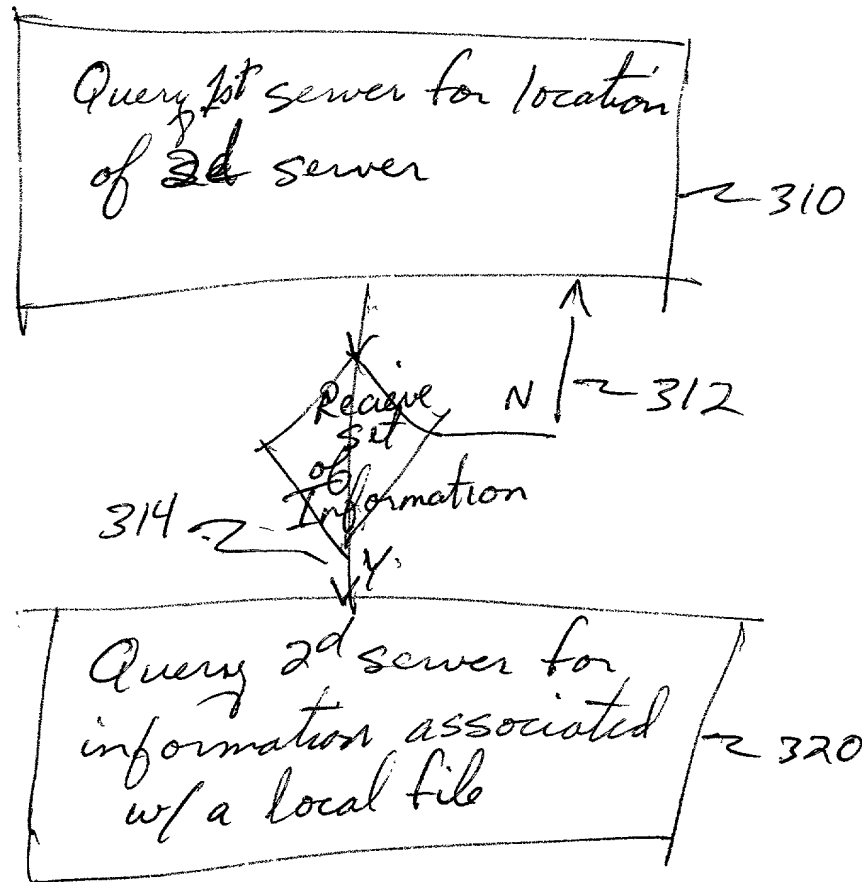 Query 1st server for location
of 2d server
310
N
312
Recieve
set
of
Information
314
Y
Query 2d server for
information associated
w/ a local file
320